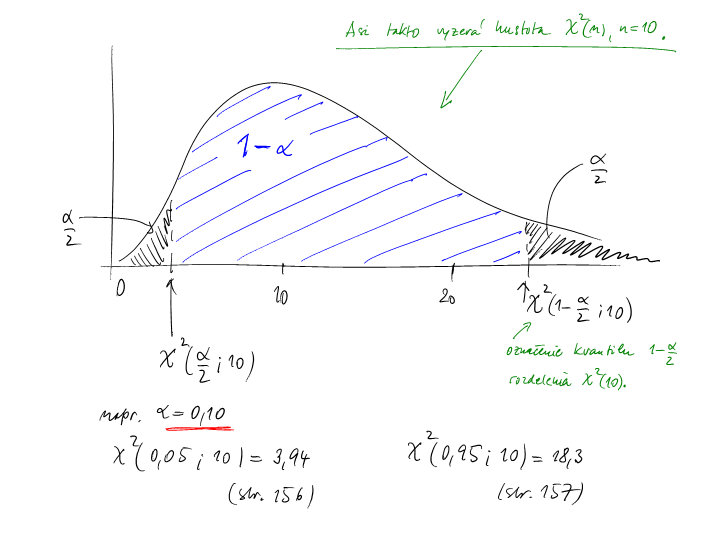 Asi takto vyzerá hustota χ²(n), n=10.
1-α
α/2
α/2
0
10
20
χ²(α/2; 10)
χ²(1-α/2; 10)
označenie kvantilu 1-α/2
rozdelenia χ²(10).
napr. α=0,10
χ²(0,05; 10) = 3,94
χ²(0,95; 10) = 18,3
(str. 156)
(str. 157)